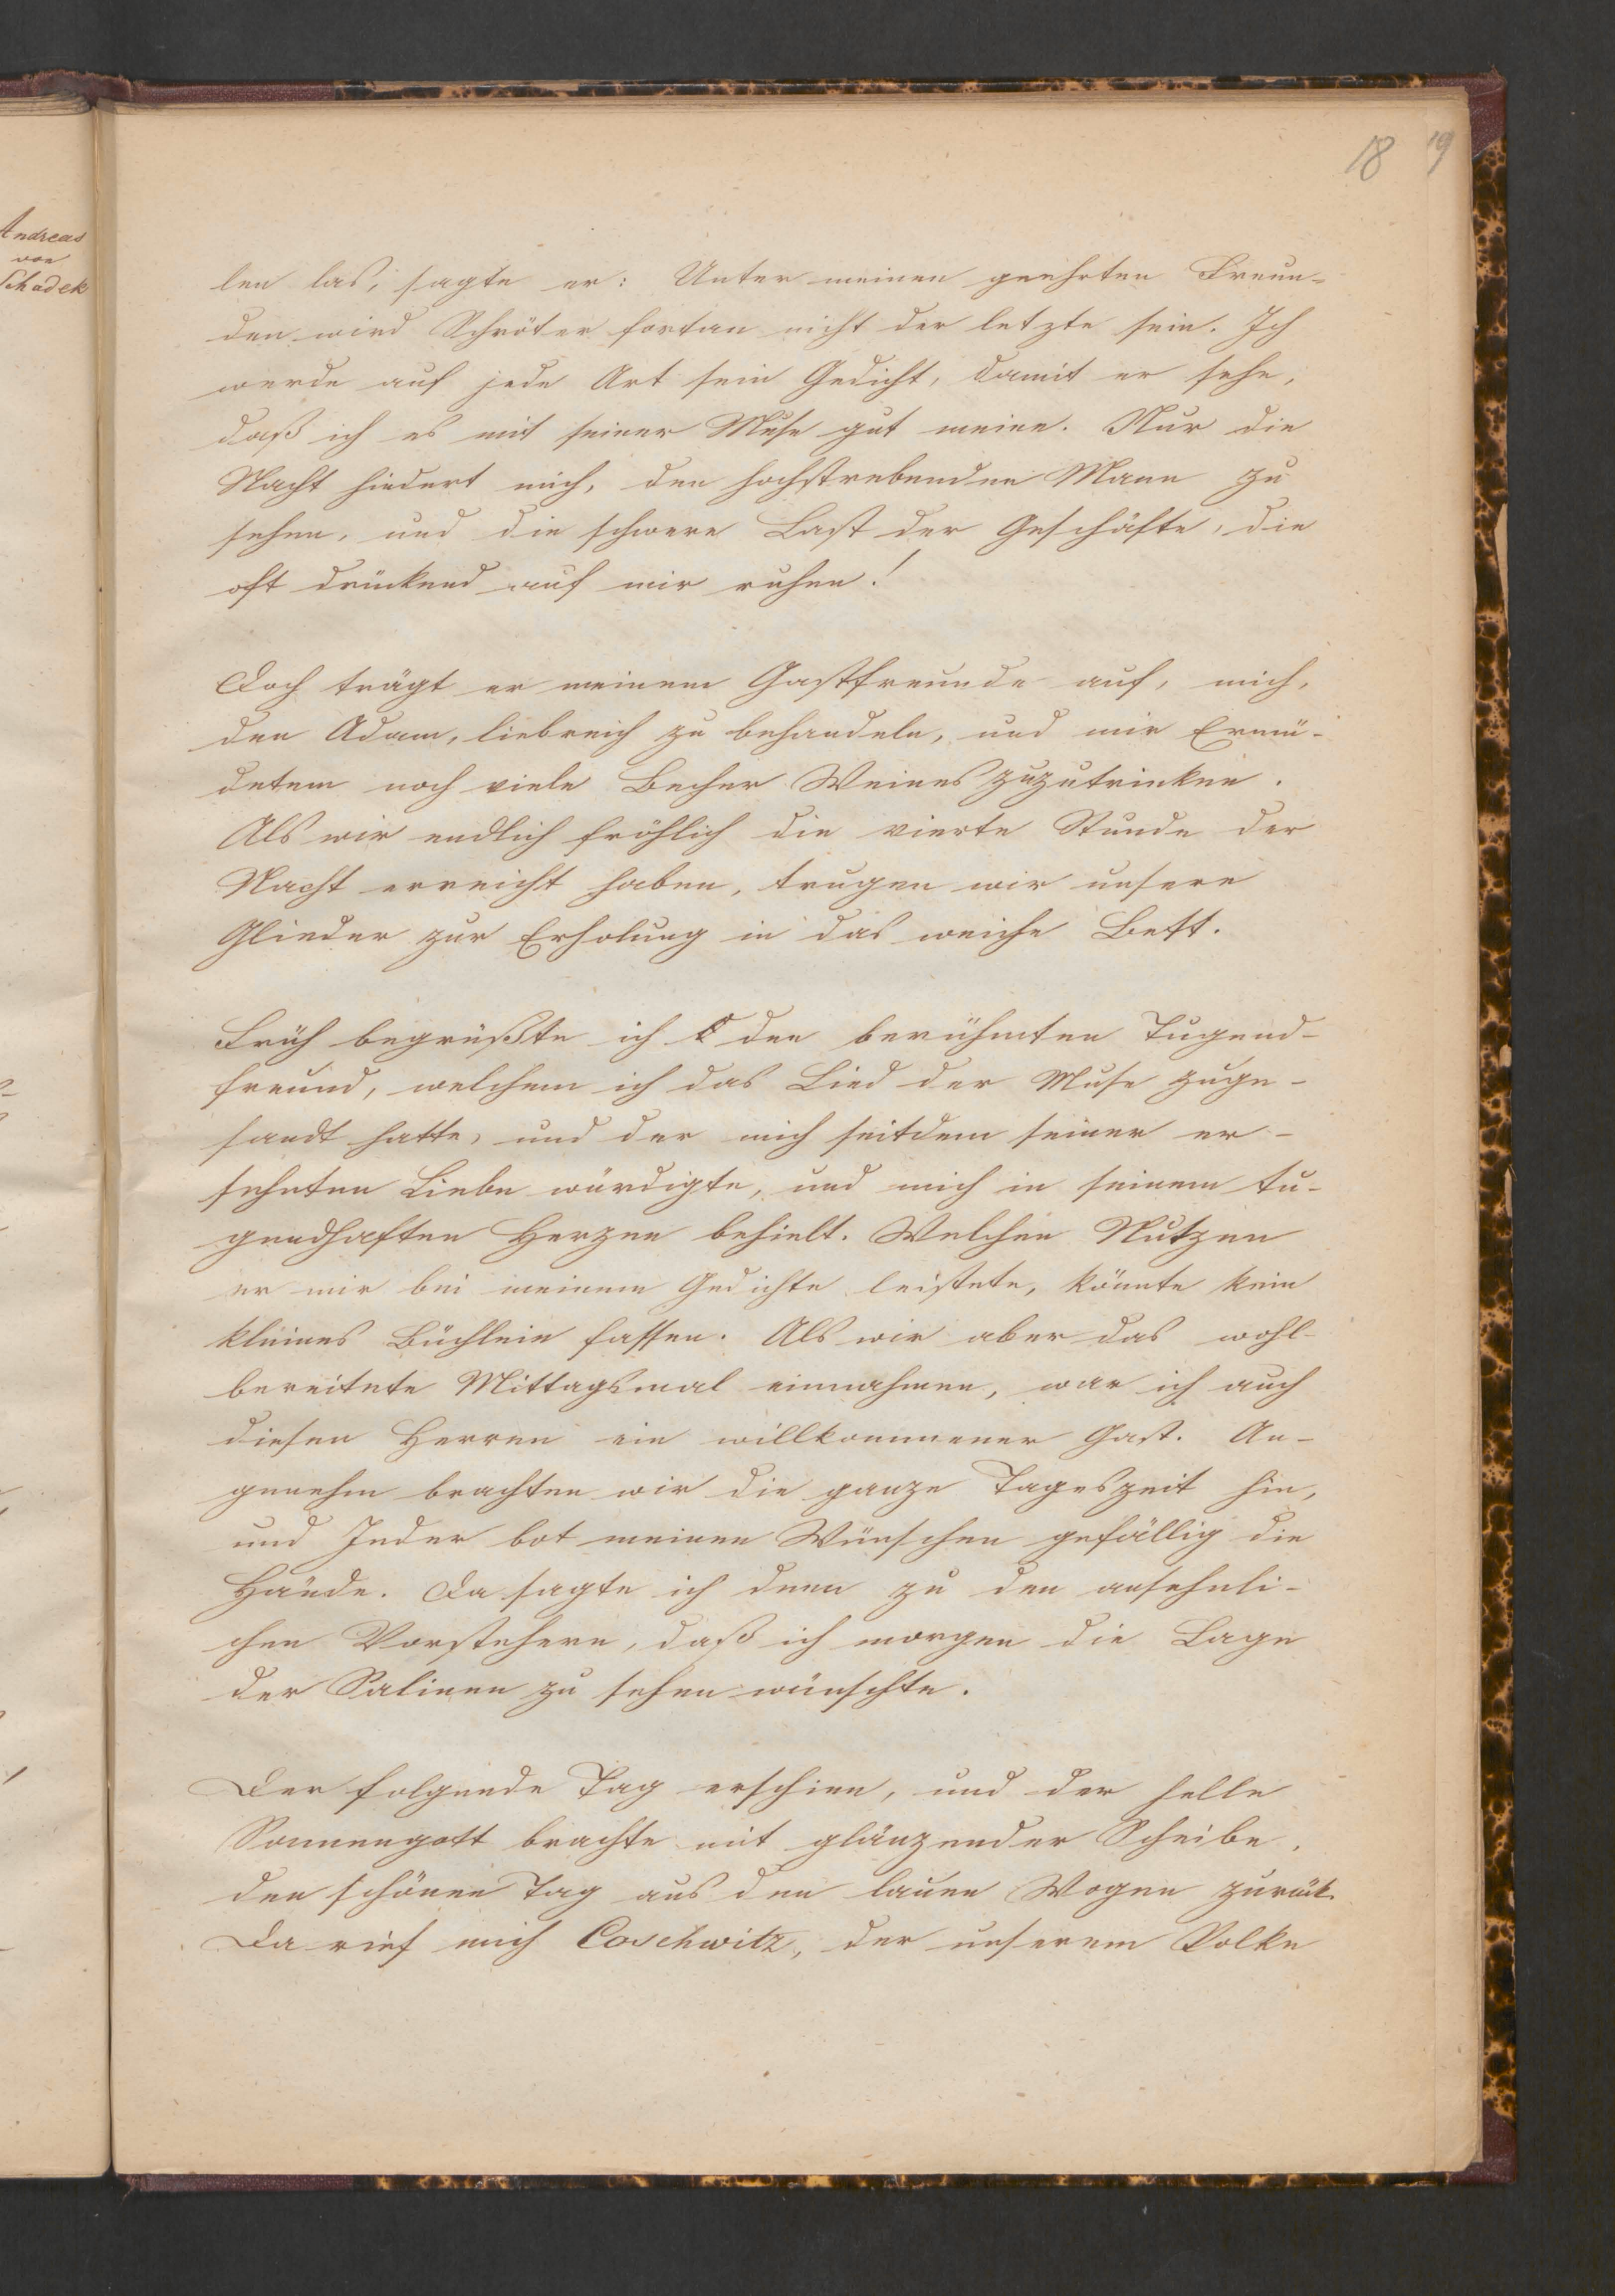 18 19
Andreas
von
Schadek
len las, sagte er: Unter meinen geehrten Freun-
den wird Schröter fortan nicht der letzte sein. Ich
werde auf jede Art sein Gedicht, damit er sehe,
daß ich es mit seiner Muse gut meine. Nur die
Nacht hindert mich, den hochstrebenden Mann zu
sehen, und die schwere Last der Geschäfte, die
oft drückend auf mir ruhen!
Doch trägt er meinem Gastfreunde auf, mich,
den Adam, liebreich zu behandeln, und mir Ermü-
detem noch viele Becher Weines zuzutrinken.
Als wir endlich fröhlich die vierte Stunde der
Nacht erreicht haben, trugen wir unsere
Glieder zur Erholung in das weiche Bett.
Früh begrüßte ich den berühmten Tugend-
freund, welchem ich das Lied der Muse zuge-
sandt hatte, und der mich seitdem seiner er-
sehnten Liebe würdigte, und mich in seinem tu-
gendhaften Herzen behielt. Welchen Nutzen
er mir bei meinem Gedichte leistete, könnte kein
kleines Büchlein fassen. Als wir aber das wohl-
bereitete Mittagsmal einnahmen, war ich auch
diesen Herren ein willkommener Gast. An-
genehm brachten wir die ganze Tageszeit hin,
und Jeder bot meinen Wünschen gefällig die
Hände. Da sagte ich denn zu den ansehnli-
chen Vorstehern, daß ich morgen die Lage
der Salinen zu sehen wünschte.
Der folgende Tag erschien, und der helle
Sonnengott brachte mit glänzender Scheibe,
den schönen Tag aus den lauen Wogen zurück.
Da rief mich Coschwitz, der unserem Volke